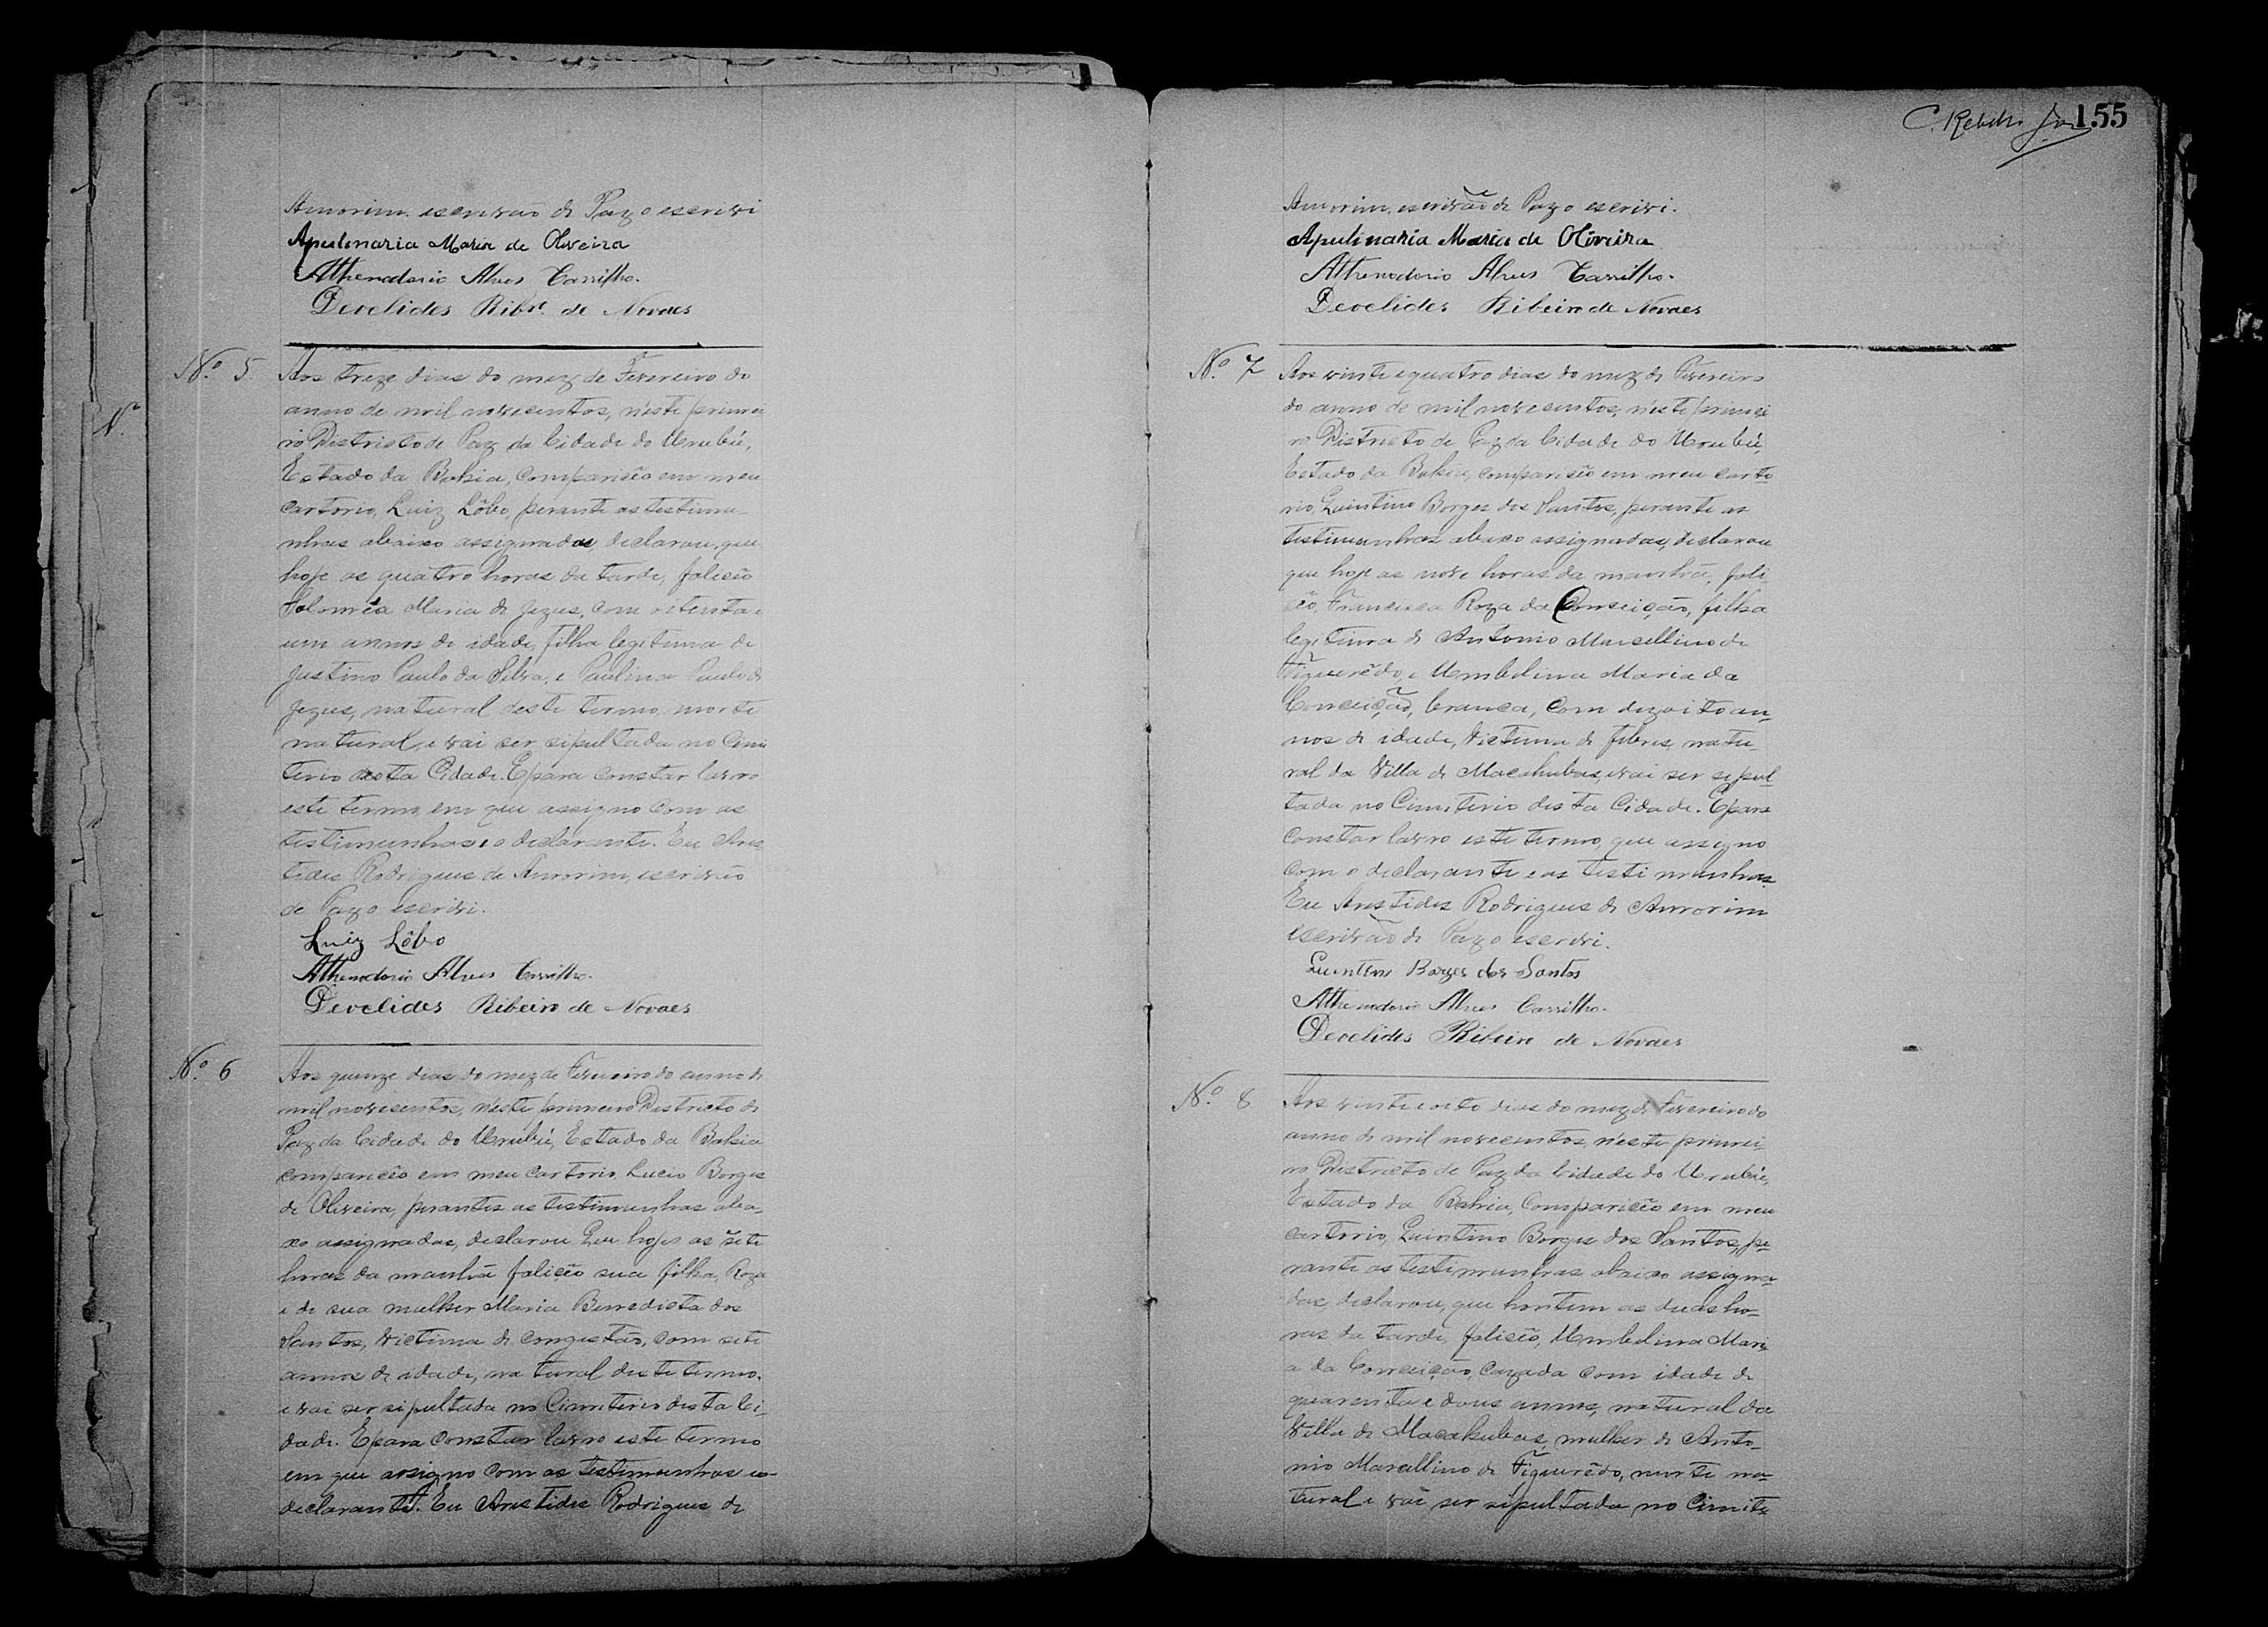 Amorim, escrivão de Paz o escrivi
Apulinaria Maria de Oliveira
Athenodorio Alves Carrilho.
Deoclides Ribr.º de Novaes
Nº 5 Aos treze dias do mez de Fevereiro do
anno de mil novecentos, n'este primei
ro Districto de Paz da Cidade do Urubú,
Estado da Bahia, compariceo em meu
cartorio, Luiz Lôbo, perante as testimu-
nhas abaixo assignadas, declarou, que
hoje as quatro horas da tarde, faliceo
Solomêa Maria de Jezus, com oitenta e
um annos de idade, filha legitima de
Justino Paulo da Silva, e Paulina Paulo de
Jezus, natural deste termo, morte
natural, e vai ser sipultada no Cimi
terio desta Cidade. E para constar lavro
este termo, em que assigno com as
testimunhas e o declarante. Eu Aris
tides Rodrigues de Amorim, escrivão
de Paz o escrivi.
Luiz Lôbo
Athenodorio Alves Carrilho.
Deoclides Ribeiro de Novaes
Nº 6 Aos quinze dias do mez de Fevereiro do anno de
mil novecentos, n'este primeiro Districto de
Paz da Cidade do Urubú, Estado da Bahia
compariceo em meu cartorio, Lucio Borges
de Oliveira, perantes as testimunhas aba-
xo assignadas, declarou Que hoje as sete
horas da manhã faliceo sua filha, Roza
e de sua mulher Maria Benedicta dos
Santos, victima de congestão, com sete
annos de idade, natural deste termo,
e vai ser sipultada no Cimiterio desta Ci-
dade. E para constar lavro este termo
em que assigno com as testimunhas eo-
declarante. Eu Aristides Rodrigues de
C. Rebello Jor. 155
Amorim, escrivão de Paz o escrivi.
Apulinaria Maria de Oliveira
Athenodorio Alves Carrilho.
Deoclides Ribeiro de Novaes
Nº 7 Aos vinte e quatro dias do mez de Fevereiro
do anno de mil novecentos, n'este primei
ro Districto de Paz da Cidade do Urubú,
Estado da Bahia, compariceo em meu carto
rio, Quintino Borges dos Santos, perante as
testimunhas abaxo assignadas, declarou
que hoje as nove horas da manhã, fali-
ceo, Francisca Roza da Conceição, filha
legitima de Antonio Marcellino de
Figuerêdo, e Umbelina Maria da
Conceição, branca, com dezoito an-
nos de idade, victima de febres, natu-
ral da Villa de Macahubas, e vai ser sipul-
tada no Cimiterio desta Cidade. E para
constar lavro este termo, que assigno
com o declarante e as testimunhas.
Eu Aristides Rodrigues de Amorim
escrivão de Paz o escrivi.
Quintino Borges dos Santos
Athenodorio Alves Carrilho.
Deoclides Ribeiro de Novaes
Nº 8 Aos vinte e oito dias do mez de Fevereiro do
anno de mil novecentos, n'este primei-
ro Districto de Paz da Cidade do Urubú,
Estado da Bahia, compariceo em meu
cartorio, Quintino Borges dos Santos, pe-
rante as testimunhas abaixo assigna-
das, declarou, que hontem as duas ho-
ras da tarde, faliceo, Umbelina Mari
a da Conceição, cazada com idade de
quarenta e dous annos, natural da
Villa de Macahubas, mulher de Anto-
nio Marcellino de Figuerêdo, morte na-
tural e vai ser sipultada no Cimite-